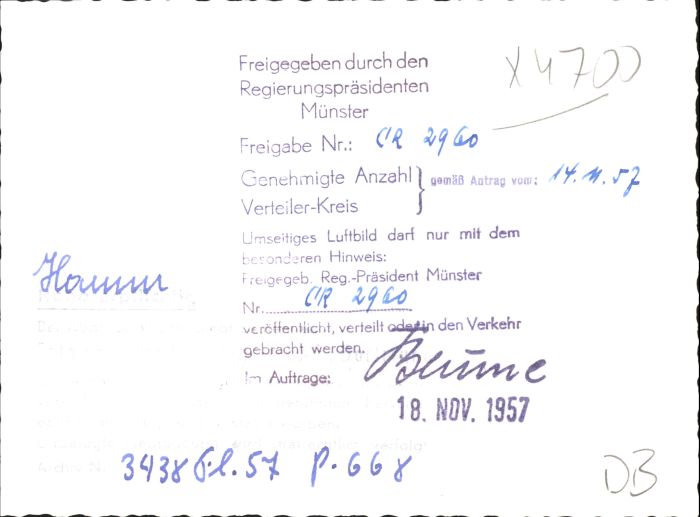 Freigegeben durch den
Regierungspräsidenten
Münster
X4700
Freigabe Nr.: CR 2960
Genehmigte Anzahl
Verteiler-Kreis
gemäß Antrag vom: 14.11.57
Umseitiges Luftbild darf nur mit dem
besonderen Hinweis:
Freigegeb. Reg.-Präsident Münster
Nr. CR 2960
veröffentlicht, verteilt oder in den Verkehr
gebracht werden.
Im Auftrage:
18. NOV. 1957
Hamm
Archiv Nr. 3438 57 P. 668
DB